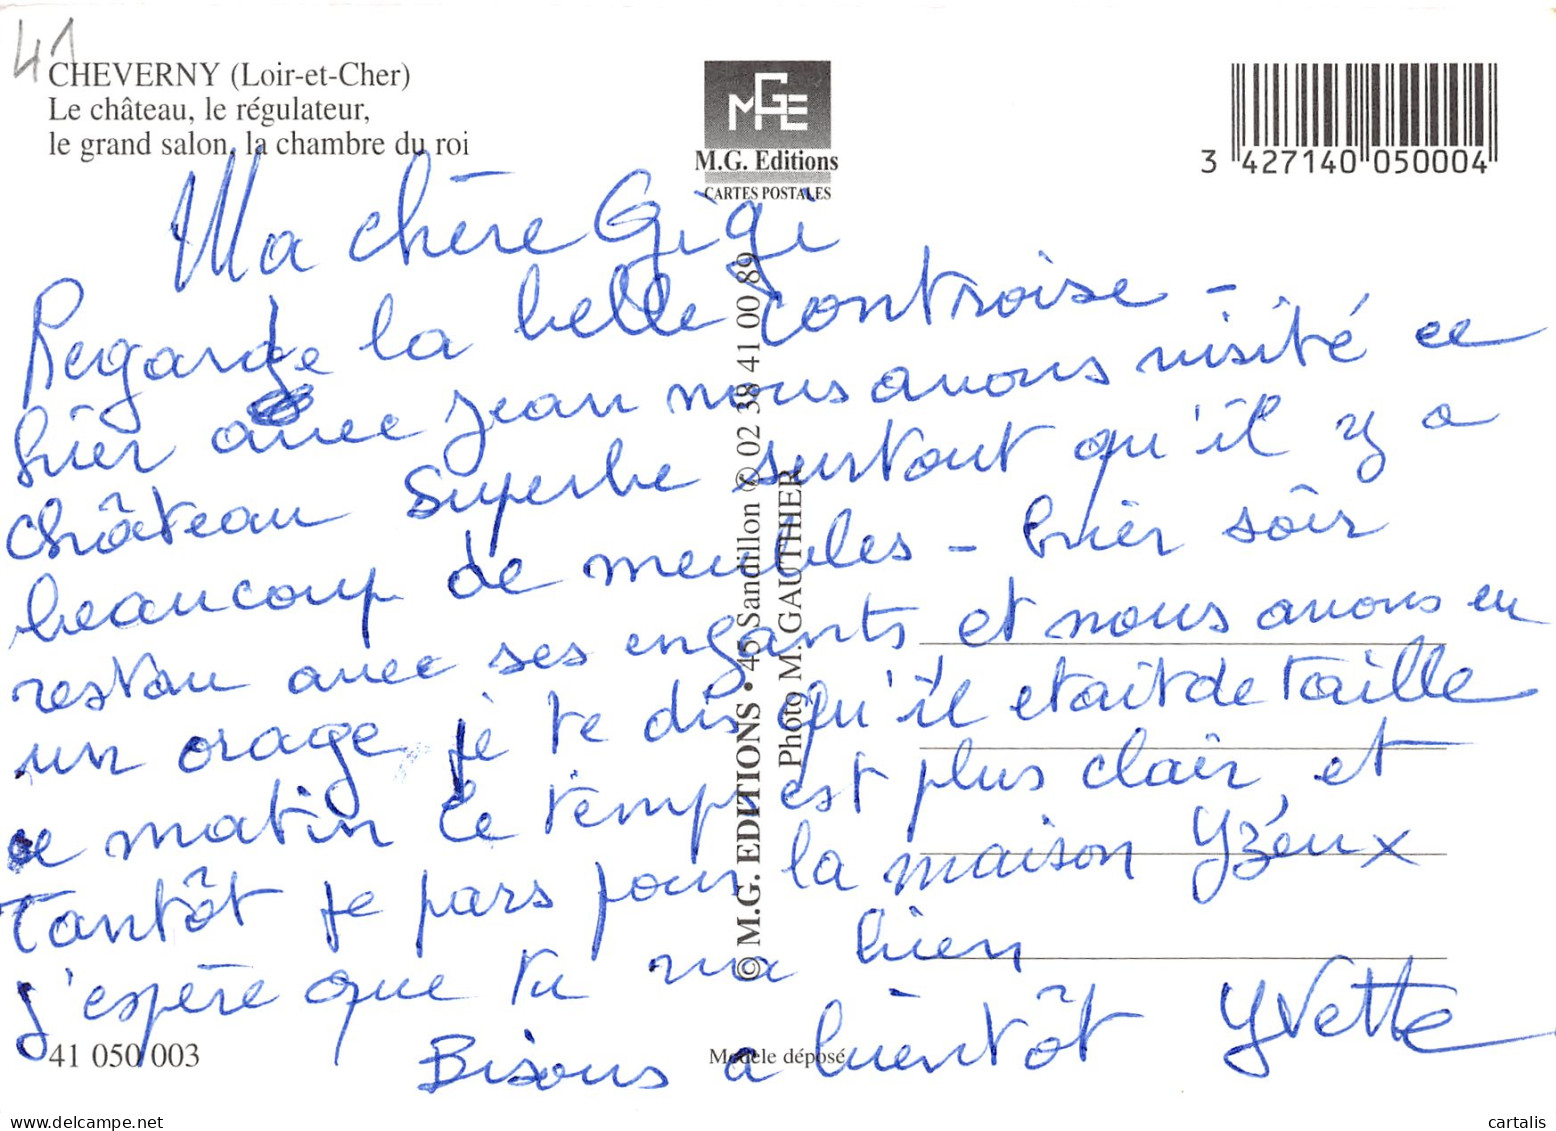 41
CHEVERNY (Loir-et-Cher)
Le château, le régulateur,
le grand salon, la chambre du roi
MGE
M.G. Editions
CARTES POSTALES
3 427140 050004
Ma chère Gigi
Regarde la belle controise -
hier avec Jean nous avons visité ce
château superbe surtout qu'il y a
beaucoup de meubles - hier soir
restau avec ses engants et nous avons eu
un orage je te dis qu'il etait de taille
ce matin le temps est plus clair, et
Tantôt je pars pour la maison Yzeux
j'espère que tu va bien
Bisous a bientôt Yvette
© M.G. EDITIONS • 45 Sandillon ✆ 02 38 41 00 89
Photo M. GAUTHIER
41 050 003
Modèle déposé
cartalis